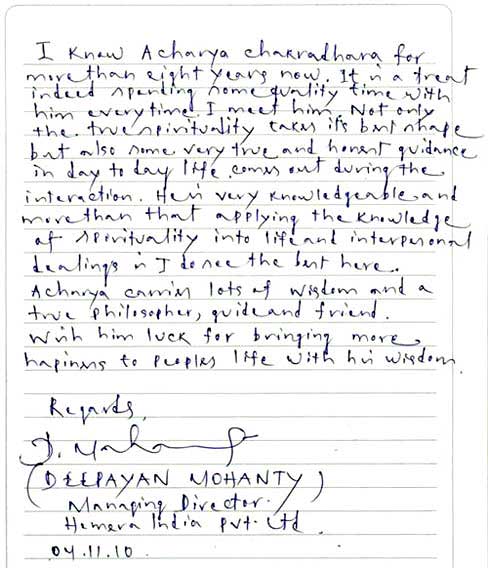 I know Acharya chakradhara for
more than eight years now. It is a treat
indeed spending some quality time with
him everytime I meet him. Not only
the true spirituality takes its best shape
but also some very true and honest guidance
in day to day life comes out during the
interaction. He is very knowledgeable and
more than that applying the knowledge
of spirituality into life and interpersonal
dealings is I do see the best here.
Acharya carries lots of wisdom and a
true philosopher, guide and friend.
Wish him luck for bringing more
hapiness to peoples life with his wisdom.
Regards,
D. Mohanty
(DEEPAYAN MOHANTY)
Managing Director.
Hemera India Pvt. Ltd
04.11.10.